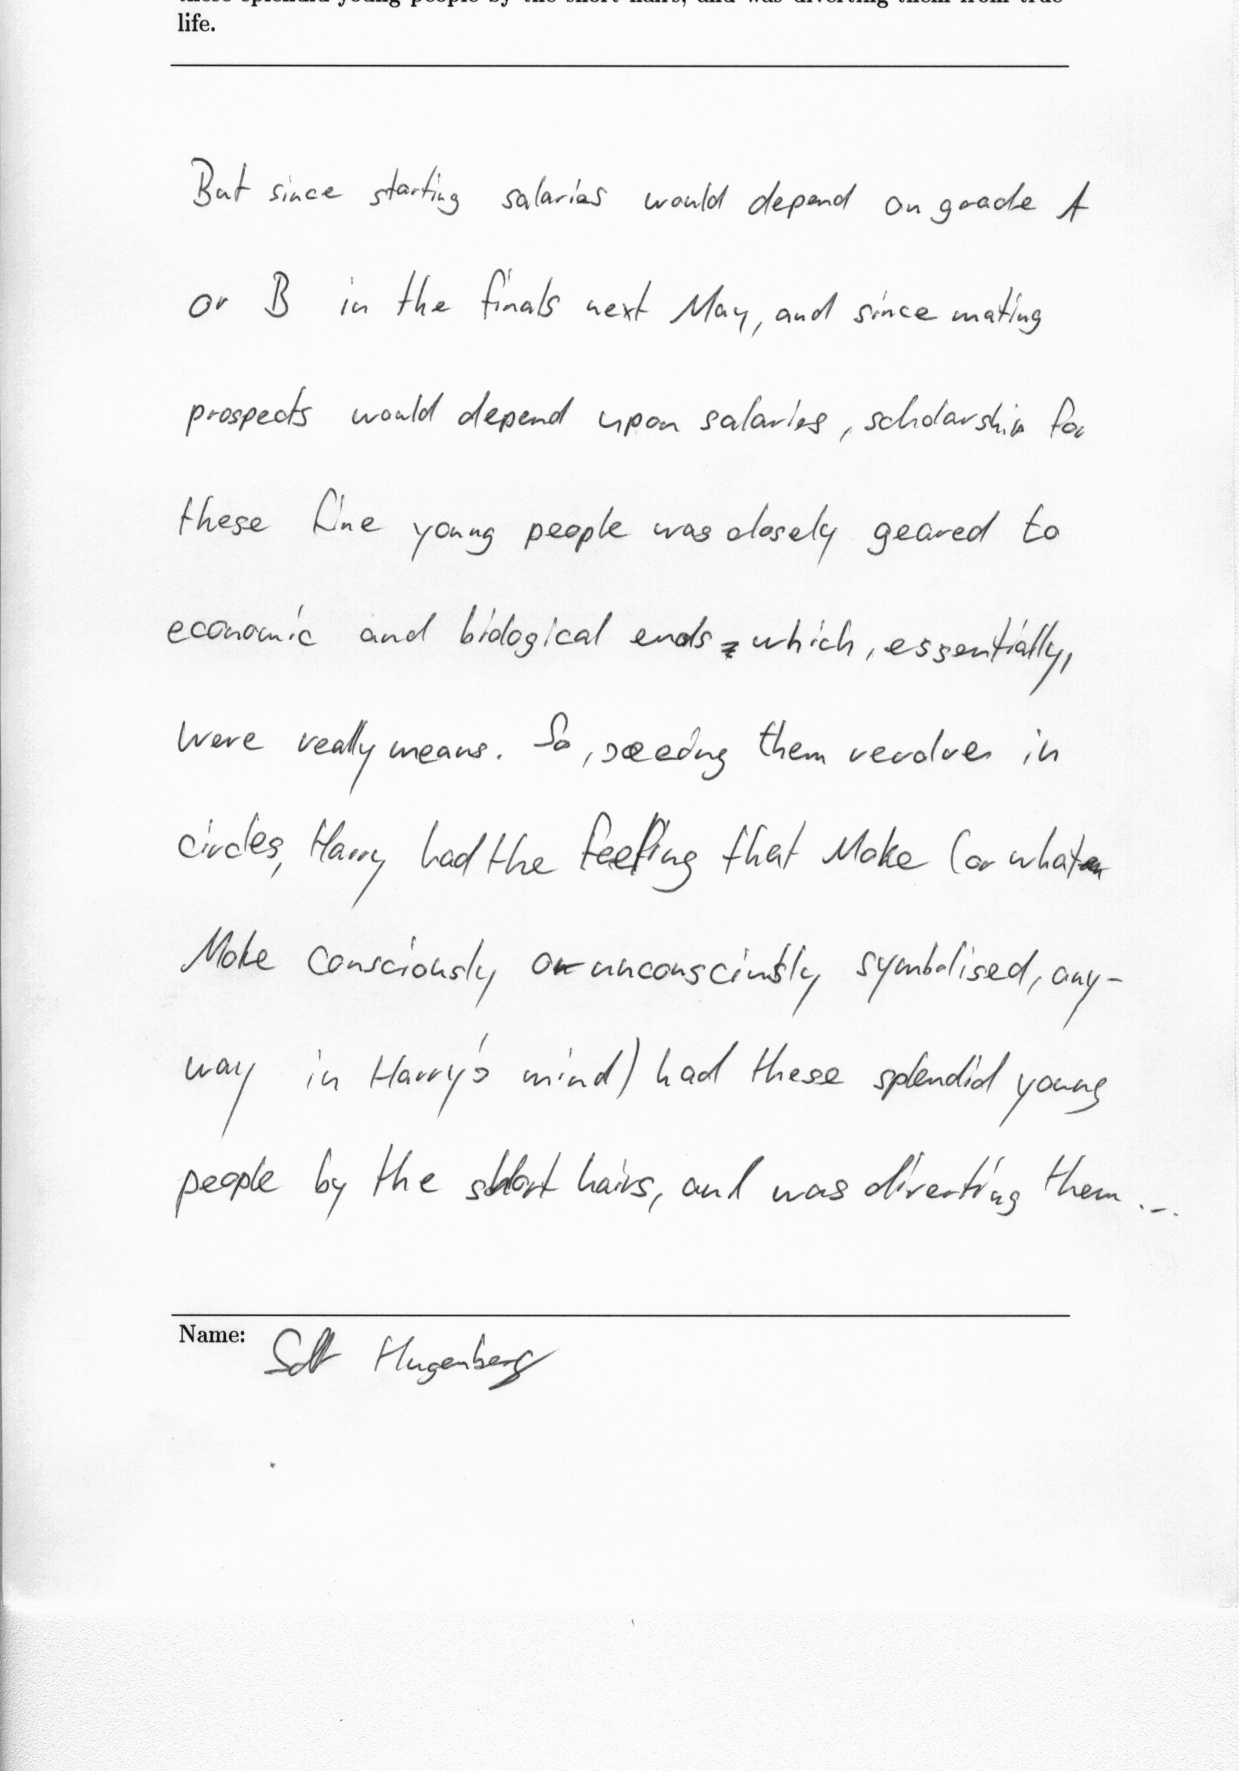 life.
But since starting salaries would depend on grade A
or B in the finals next May, and since mating
prospects would depend upon salaries, scholarship for
these fine young people was closely geared to
economic and biological ends - which, essentially,
were really means. So, seeing them revolve in
circles, Harry had the feeling that Moke (or what
Moke consciously or unconsciously symbolised, any-
way in Harry's mind) had these splendid young
people by the short hairs, and was diverting them ...
Name: Hugenberg